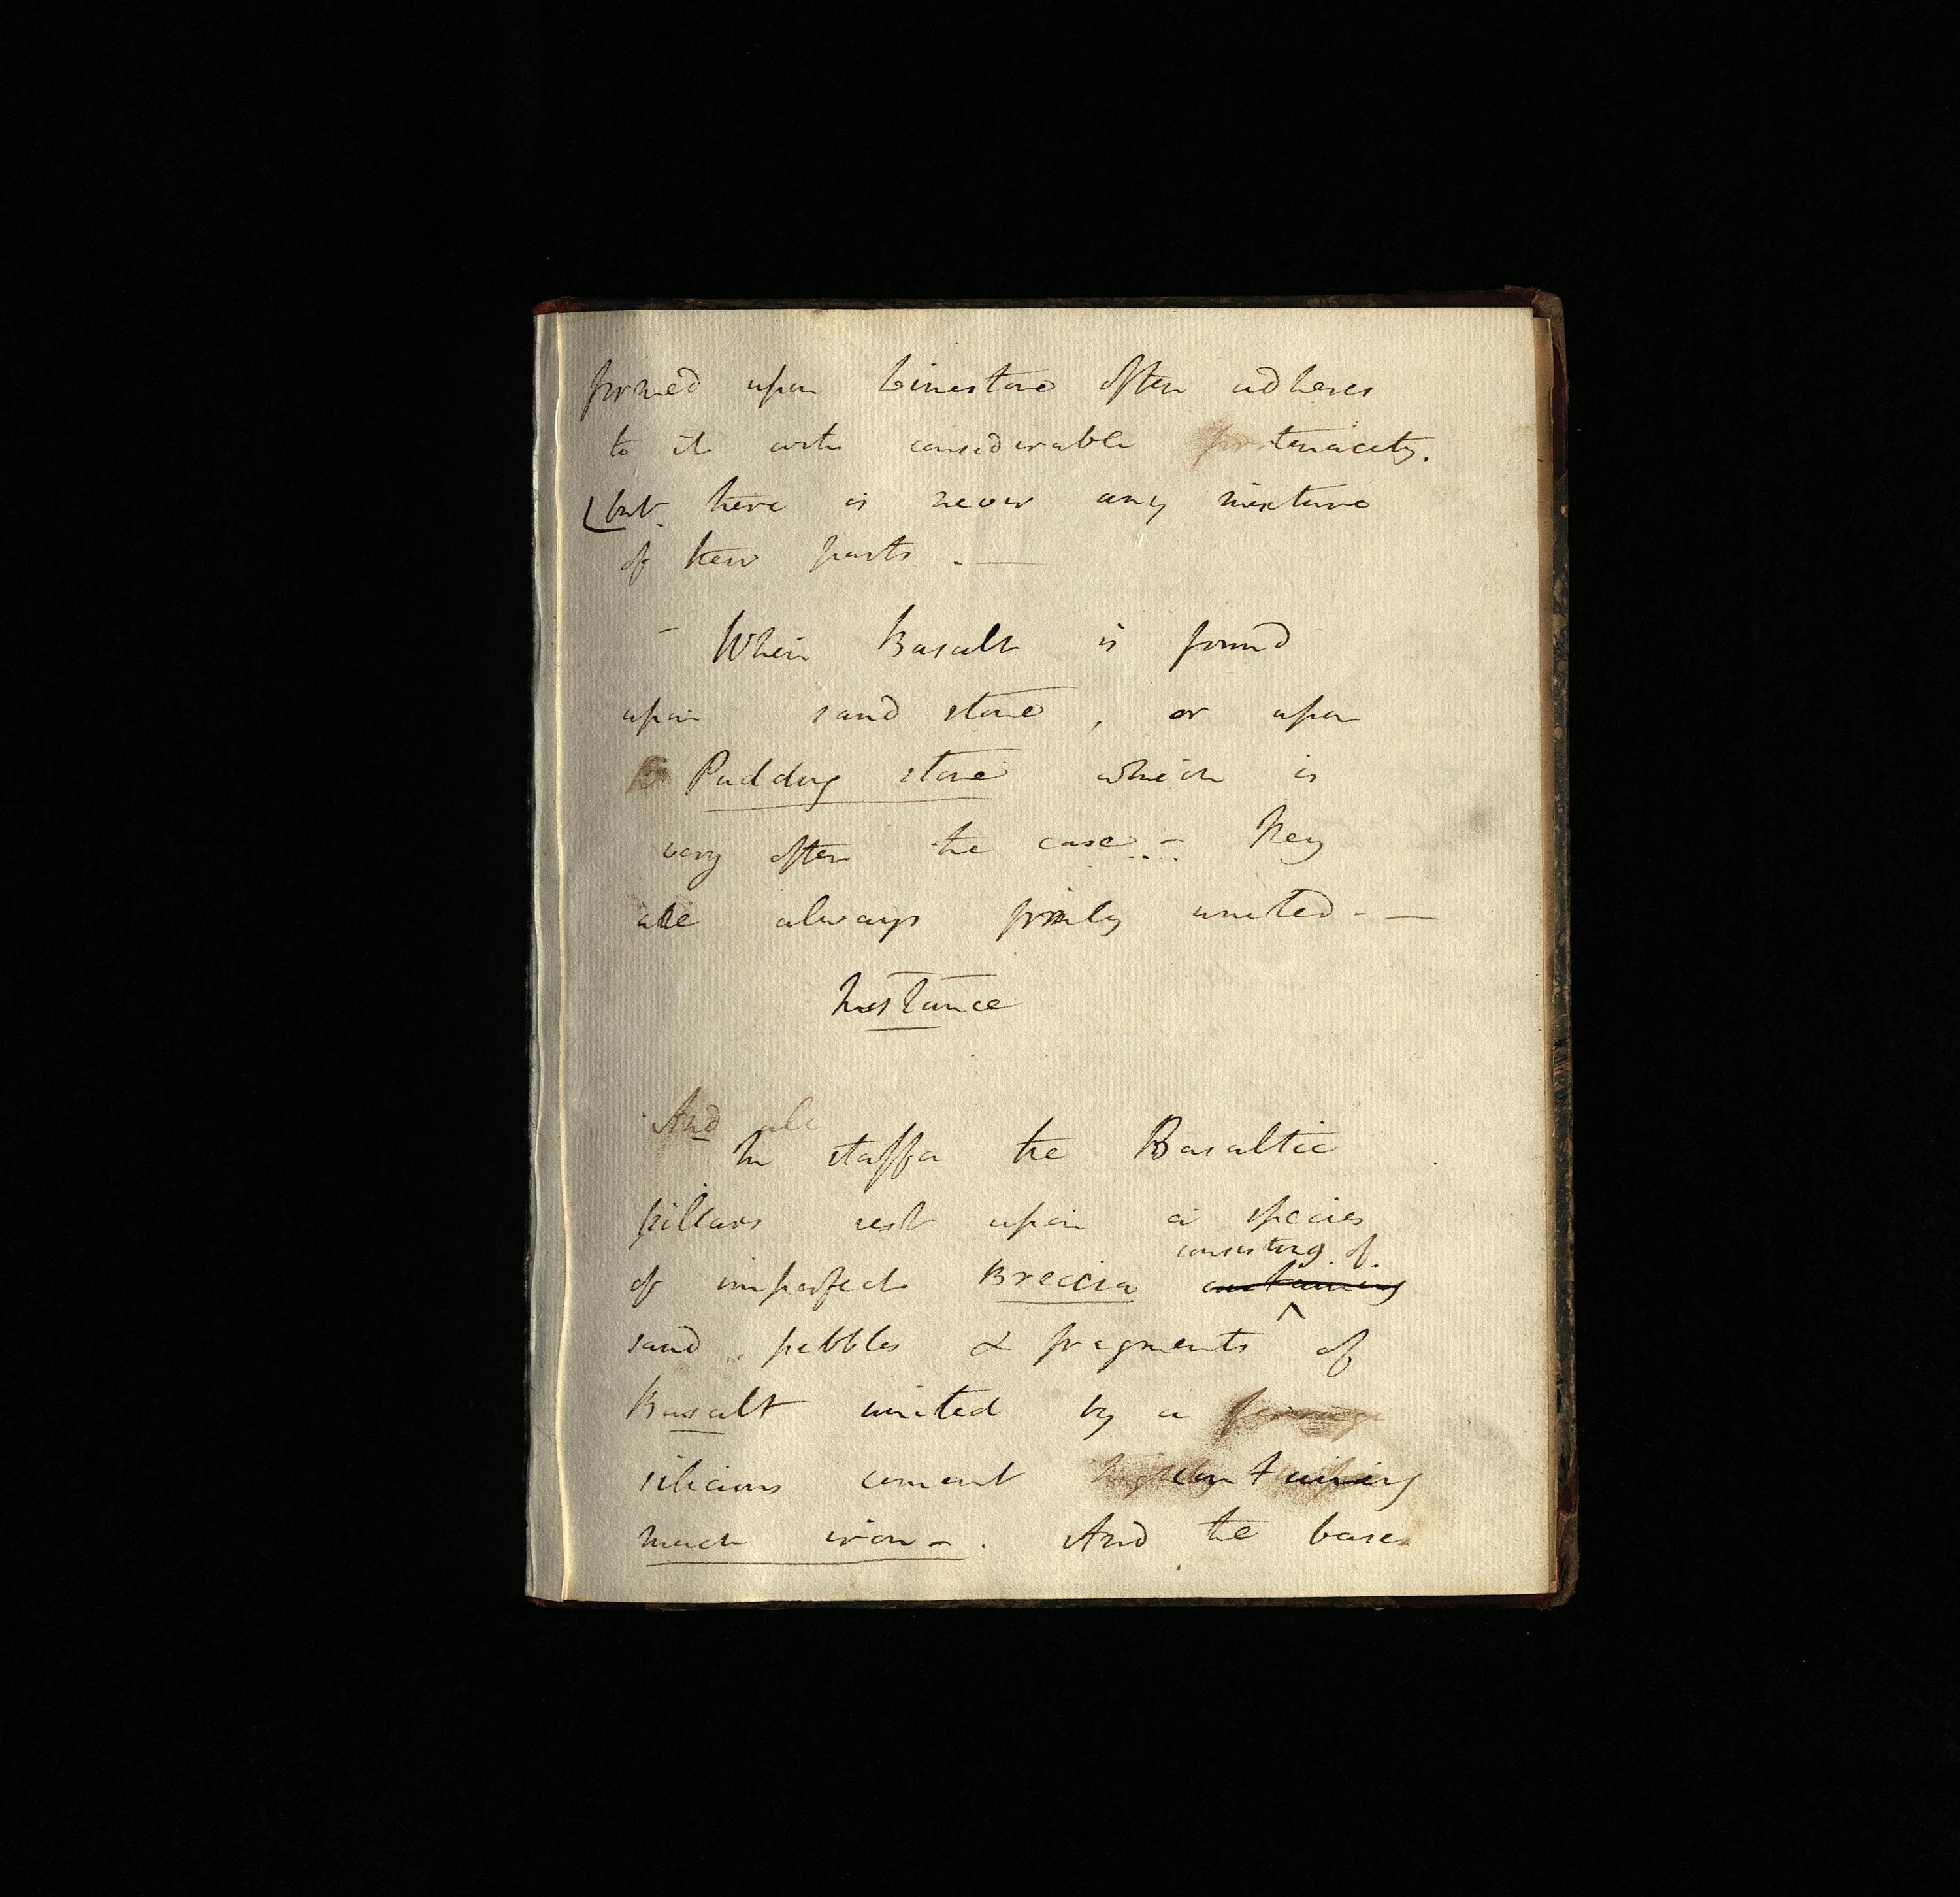 formed upon Limestone often adheres
to it with considerable tenacity.
but there is never any mixture
of their parts . —
— When Basalt is found
upon sand stone , or upon
Pudding stone which is
very often the case . — They
are always firmly united - —
Instance
And all
In staffa the Basaltic
pillars rest upon a species
consisting of
of imperfect Breccia containing
sand , pebbles & fragments of
Basalt united by a
silicious cement containing
much iron - . And the bases